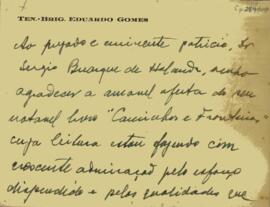 Cp 284
TEN.-BRIG. EDUARDO GOMES
Ao prezado e eminente patricio, Dr
Sergio Buarque de Holanda, venho
agradecer a amavel oferta do seu
notavel livro "Caminhos e Fronteiras
cuja leitura estou fazendo com
crescente admiração pelo esforço
dispendido e pelas qualidades que